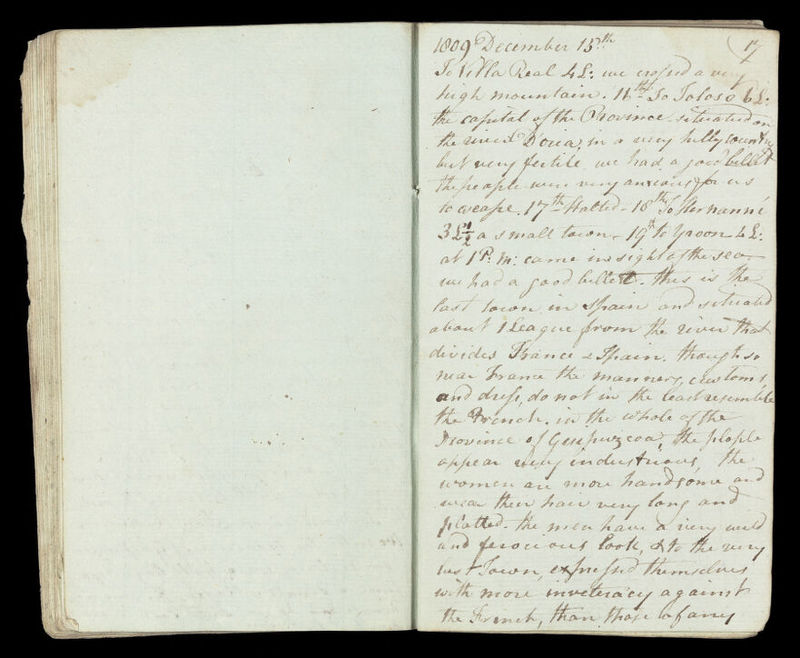 17
1809 December 15th
To Villa Real 4 L: we crossed a very
high mountain. 16th To Toloso 6 L:
the capital of the Province situated on
the river Doria, in a very hilly country
but very fertile we had a good billet
the people were very anxious for us
to escape. 17th Halted - 18th To Hernanni
3 L 1/2 a small town - 19th to Yroon 4 L:
at 1 P: M: came in sight of the sea
we had a good billett. this is the
last town in Spain and situated
about 1 League from the river that
divides France & Spain. though so
near France the manners, customs,
and dress, do not in the least resemble
the French. in the whole of the
Province of Guipuzcoa, the people
appear very industrious, the
women are more handsome and
wear their hair very long and
platted. the men have a very wild
and ferocious look, & to the very
last Town, expressed themselves
with more inveteracy against
the French, than those of any